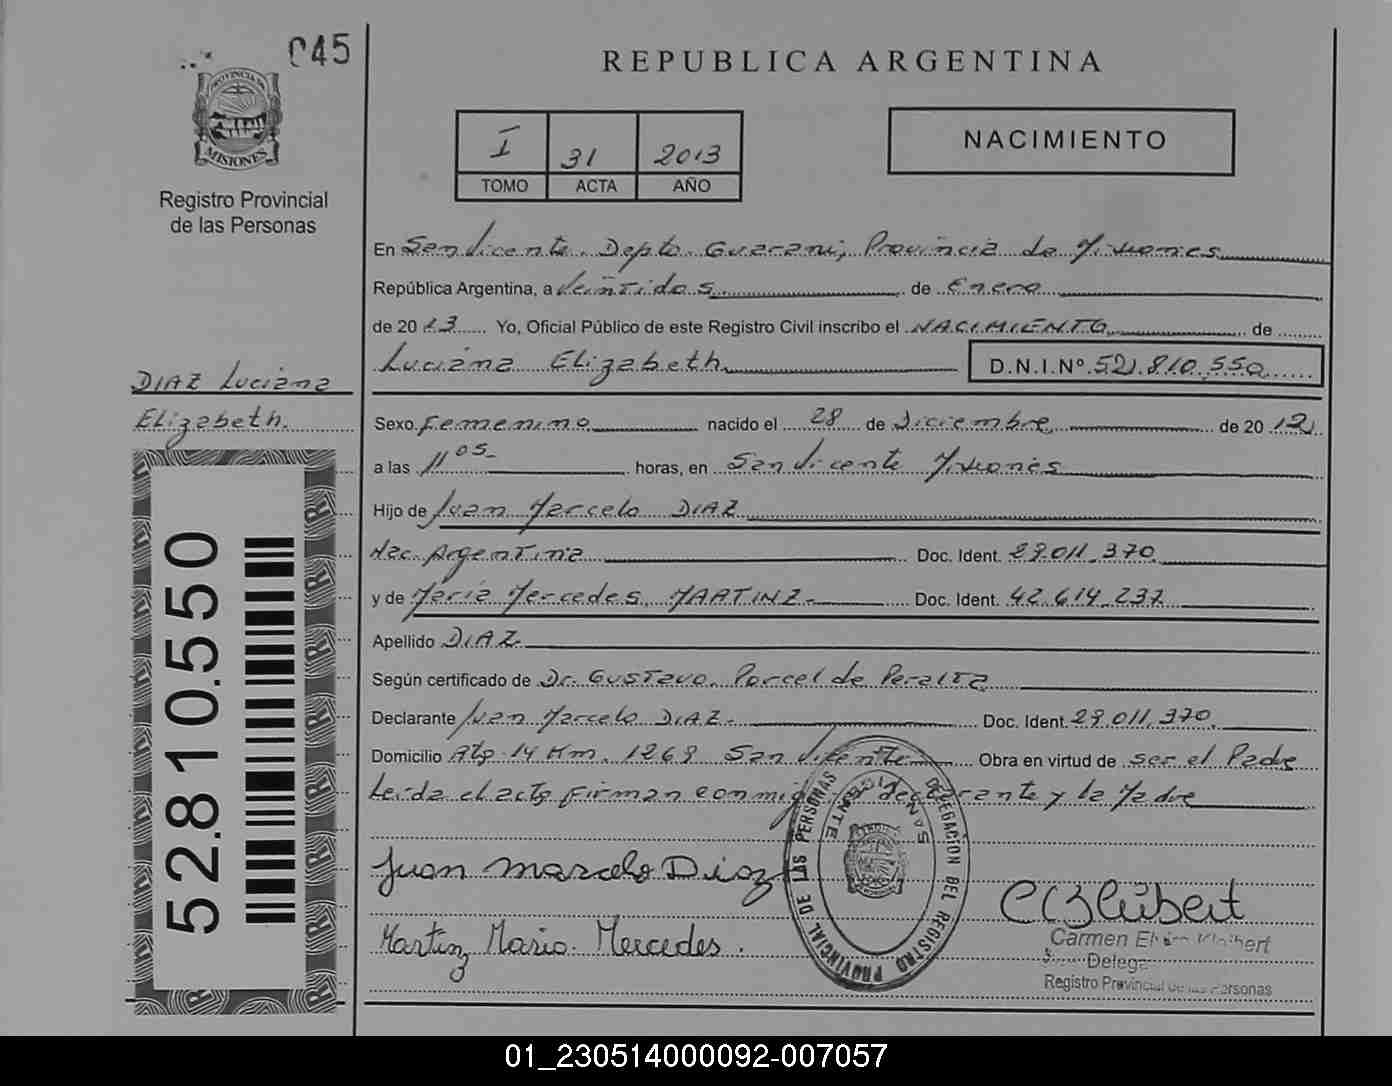 045
PROVINCIA DE
MISIONES
Registro Provincial
de las Personas
REPUBLICA ARGENTINA
I 31 2013
TOMO ACTA AÑO
NACIMIENTO
En San Vicente. Depto. Guarani, Provincia de Misiones
República Argentina, a Veintidos de Enero
de 2013 Yo, Oficial Público de este Registro Civil inscribo el NACIMIENTO de
Luciana Elizabeth D.N.I.Nº 52.810.550
DIAZ Luciana
Elizabeth.
Sexo Femenino nacido el 28 de Diciembre de 2012
a las 11 05 horas, en San Vicente Misiones
Hijo de Juan Marcelo DIAZ
Nac. Argentina Doc. Ident. 29.011.370
y de Maria Mercedes MARTINZ. Doc. Ident. 42.614.237
Apellido DIAZ
Según certificado de Dr. Gustavo Porcel de Peralta
Declarante Juan Marcelo DIAZ. Doc. Ident. 29.011.370
Domicilio Km. 1269 San Vicente Obra en virtud de ser el Padre
Leida el acta firman conmigo declarante y la Madre
52.810.550
Juan Marcelo Diaz
Martinz Maria Mercedes.
DELEGACION DEL REGISTRO PROVINCIAL DE LAS PERSONAS
SAN VICENTE
Carmen
Registro Provincial de las Personas
01_230514000092-007057